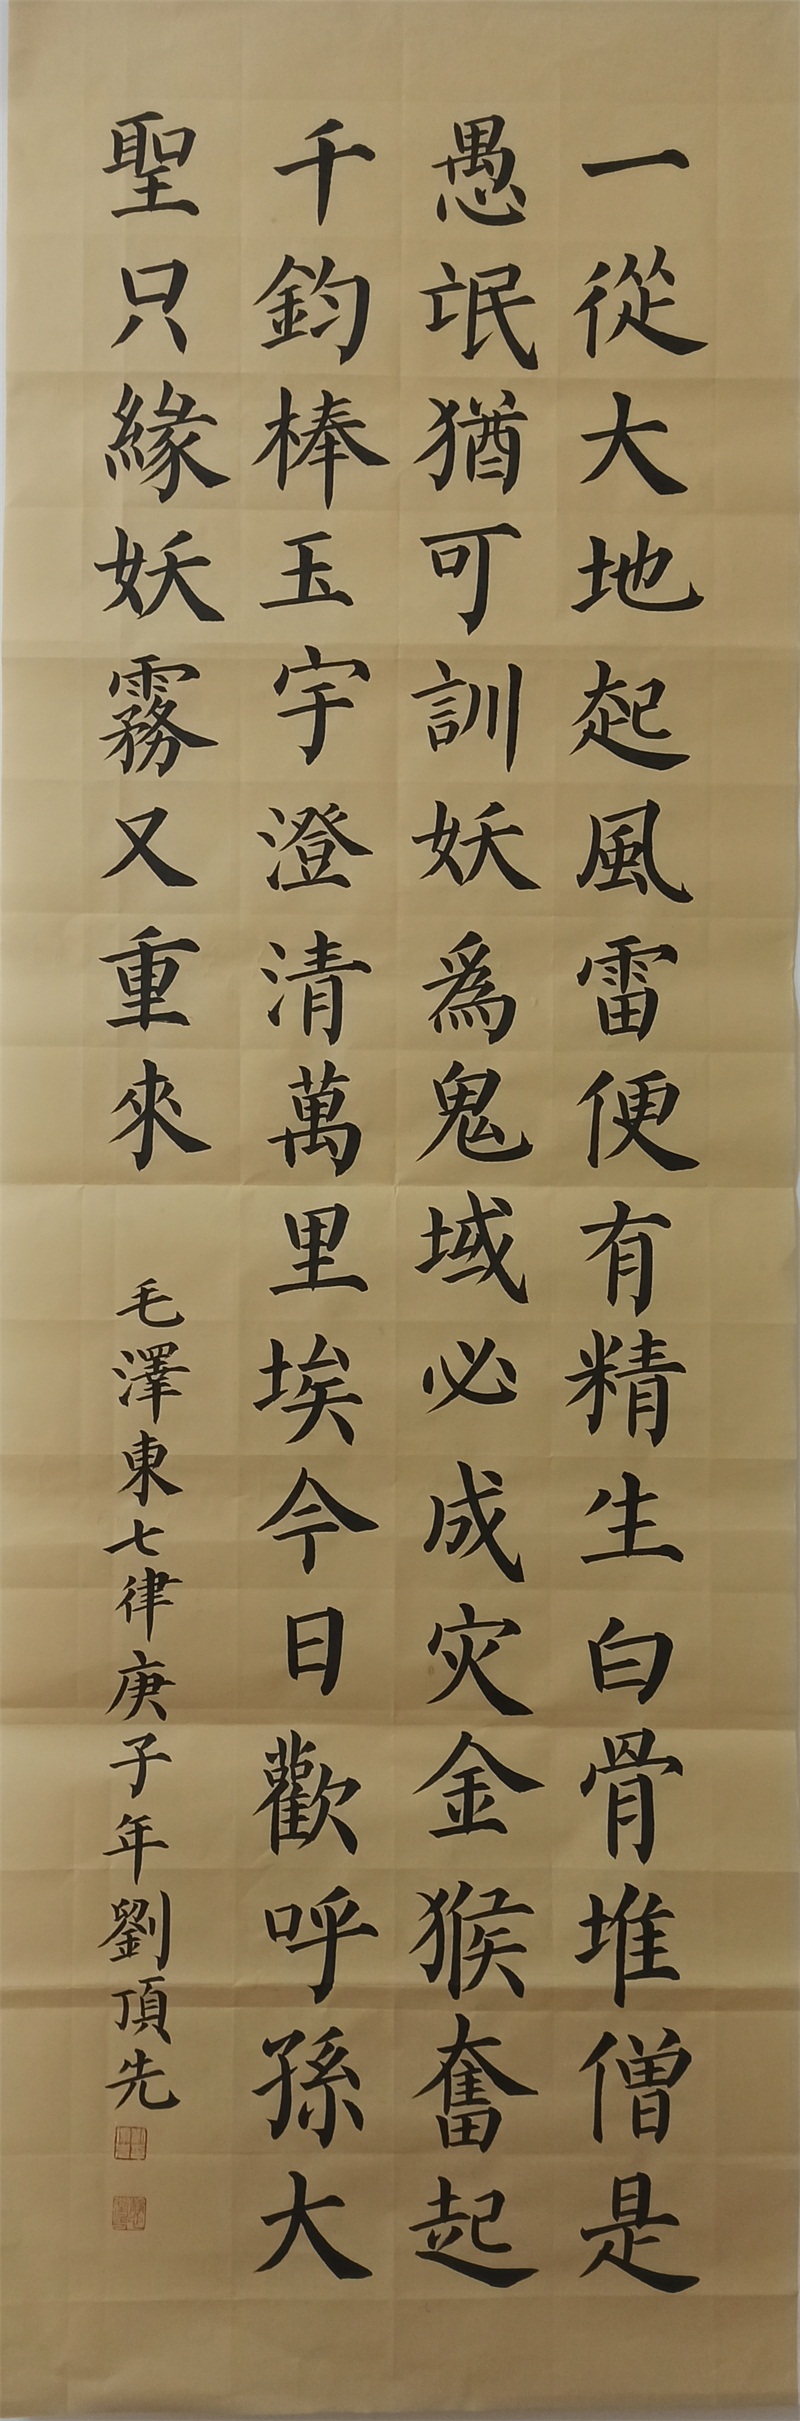 一從大地起風雷便有精生白骨堆僧是
愚氓猶可訓妖為鬼域必成灾金猴奮起
千鈞棒玉宇澄清萬里埃今日歡呼孫大
聖只緣妖霧又重來
毛澤東七律庚子年劉頂先